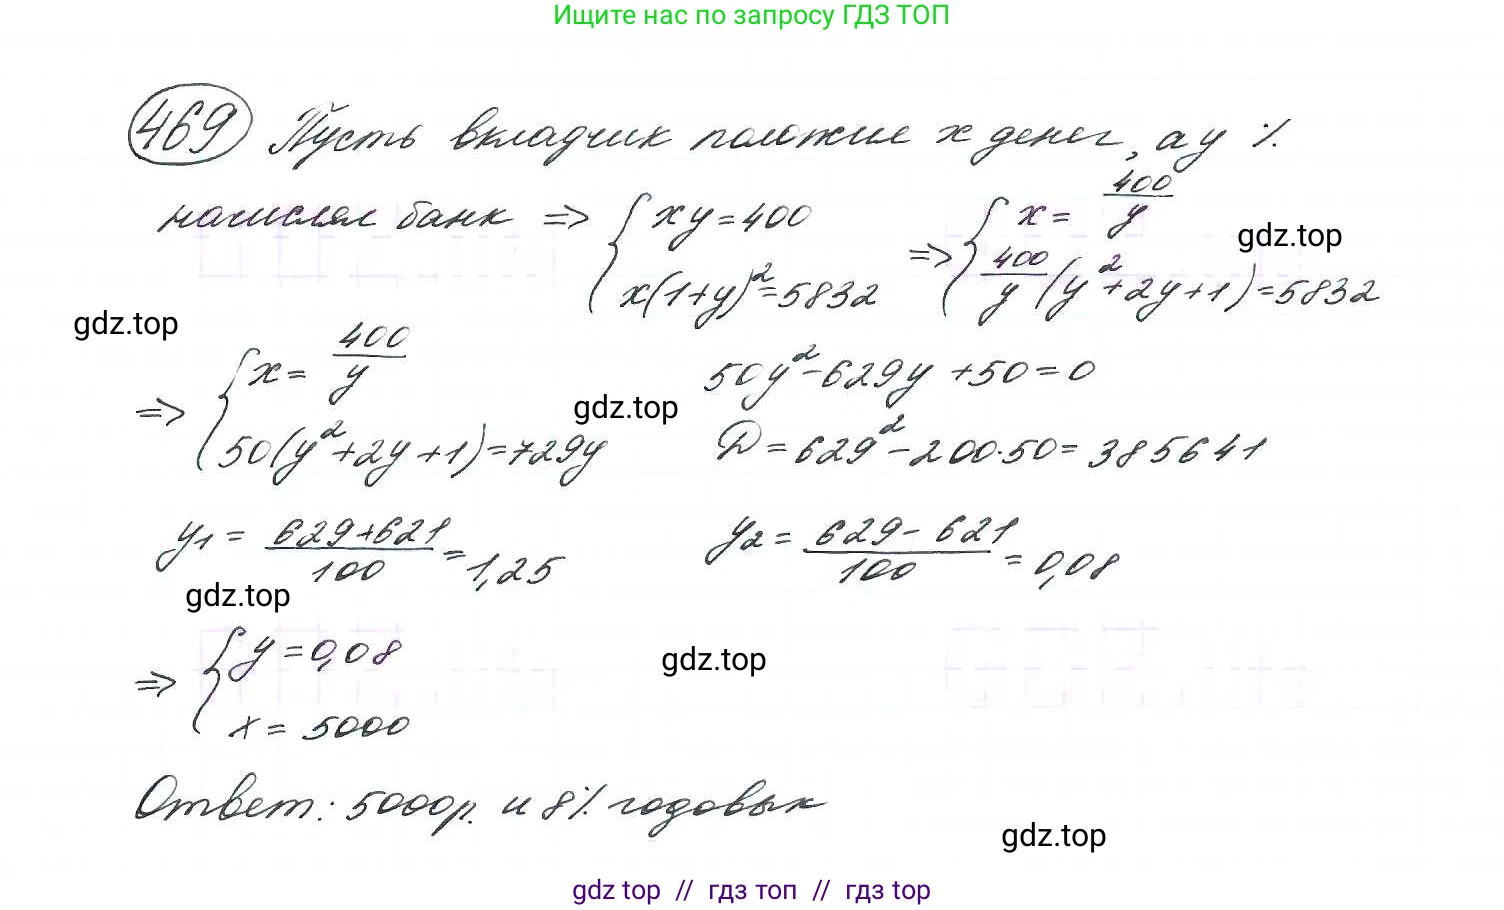 Ищите нас по запросу ГДЗ ТОП
469 Пусть вкладчик положил x денег, а y %
400
начислял банк => { xy = 400 => { x = 400/y
gdz.top
x(1+y)²=5832 400/y (y²+2y+1)=5832
gdz.top
=> { x = 400/y 50y²-629y+50=0
gdz.top
50(y²+2y+1)=729y Д = 629²-200·50=385641
y₁ = (629+621)/100 = 1,25 y₂ = (629-621)/100 = 0,08
gdz.top
=> { y = 0,08
gdz.top
x = 5000
Ответ: 5000р. и 8% годовых
gdz.top
gdz top // гдз топ // гдз top